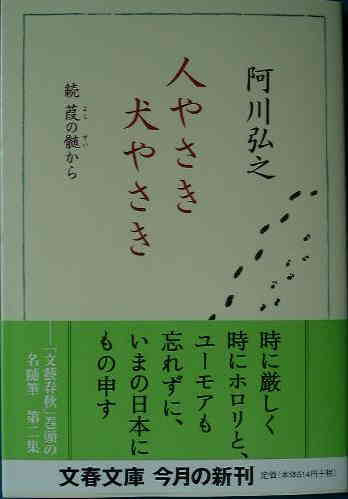 阿川弘之
人やさき
犬やさき
続 葭の髄から
よし ずい
時に厳しく
時にホロリと、
ユーモアも
忘れずに、
いまの日本に
もの申す
──「文藝春秋」巻頭の
名随筆 第二集
文春文庫 今月の新刊
定価(本体514円+税)